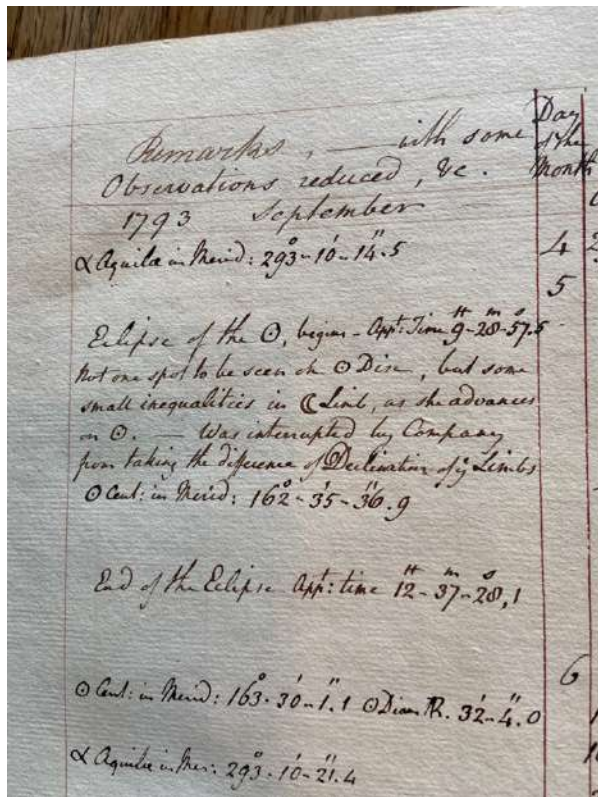 Remarks, — with some
Observations reduced, &c.
1793 September
Day
of the
Month
α Aquilæ in Merid: 293°-10'-14".5
4
5
Eclipse of the ☉, begins - Appt: Time 9H-28m-57s.5
Not one spot to be seen on ☉ Disc, but some
small inequalities in ☾ Limb, as she advances
on ☉. — Was interrupted by Company
from taking the difference of Declination of ye Limbs
☉ Cent: in Merid: 162°-35'-36".9
End of the Eclipse Appt: time 12H-37m-28s,1
6
☉ Cent: in Merid: 163°-30'-1".1 ☉ Diam R. 32'-4".0
α Aquilæ in Mer: 293°-10'-21".4